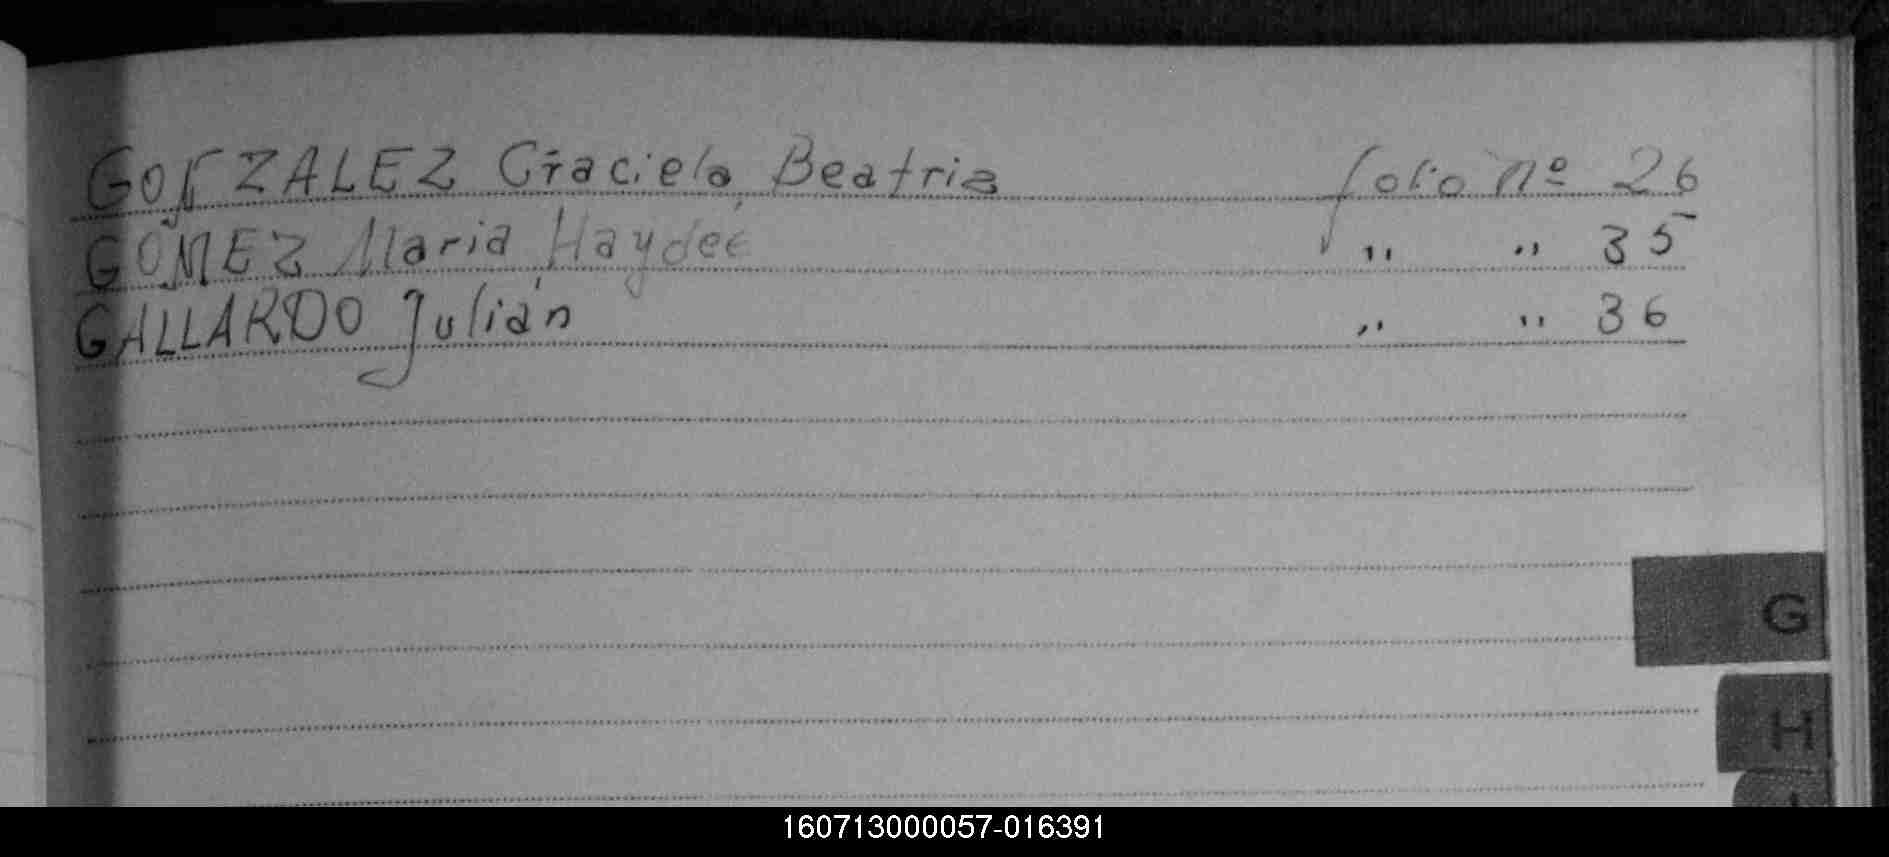 GONZALEZ Graciela Beatriz folio nº 26
GOMEZ Maria Haydeé " " 35
GALLARDO Julián " " 36
G
H
I
160713000057-016391